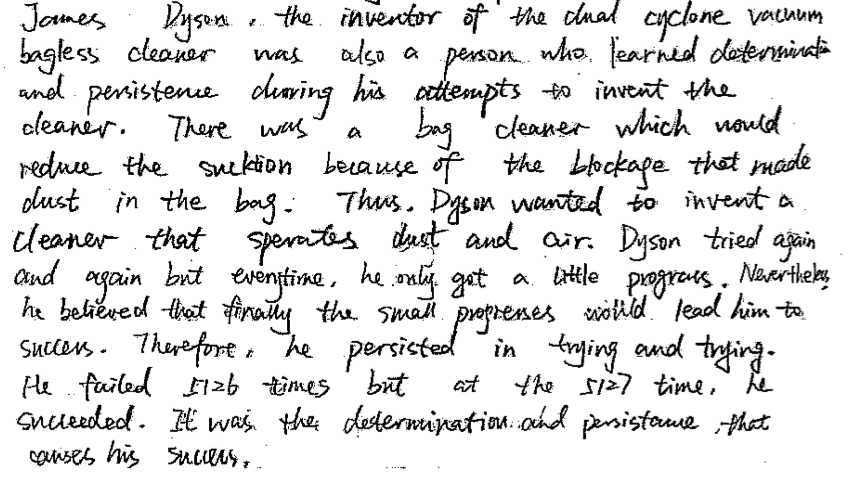 James Dyson, the inventor of the dual cyclone vacuum
bagless cleaner was also a person who learned determination
and persistence during his attempts to invent the
cleaner. There was a bag cleaner which would
reduce the sucktion because of the blockage that made
dust in the bag. Thus. Dyson wanted to invent a
cleaner that sperates dust and air. Dyson tried again
and again but everytime, he only got a little progress. Nevertheless,
he believed that finally the small progresses would lead him to
success. Therefore, he persisted in trying and trying.
He failed 5126 times but at the 5127 time, he
succeeded. It was the determination and persistance that
causes his success.